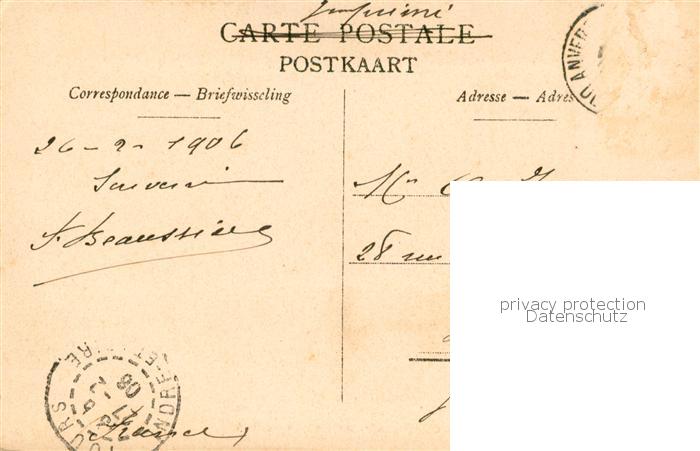 Imprimé
CARTE POSTALE
POSTKAART
Correspondance — Briefwisseling
Adresse — Adres
ANVER
26-2-1906
Souvenir
Mr
28 rue
privacy protection
Datenschutz
TOURS
INDRE-ET-
France